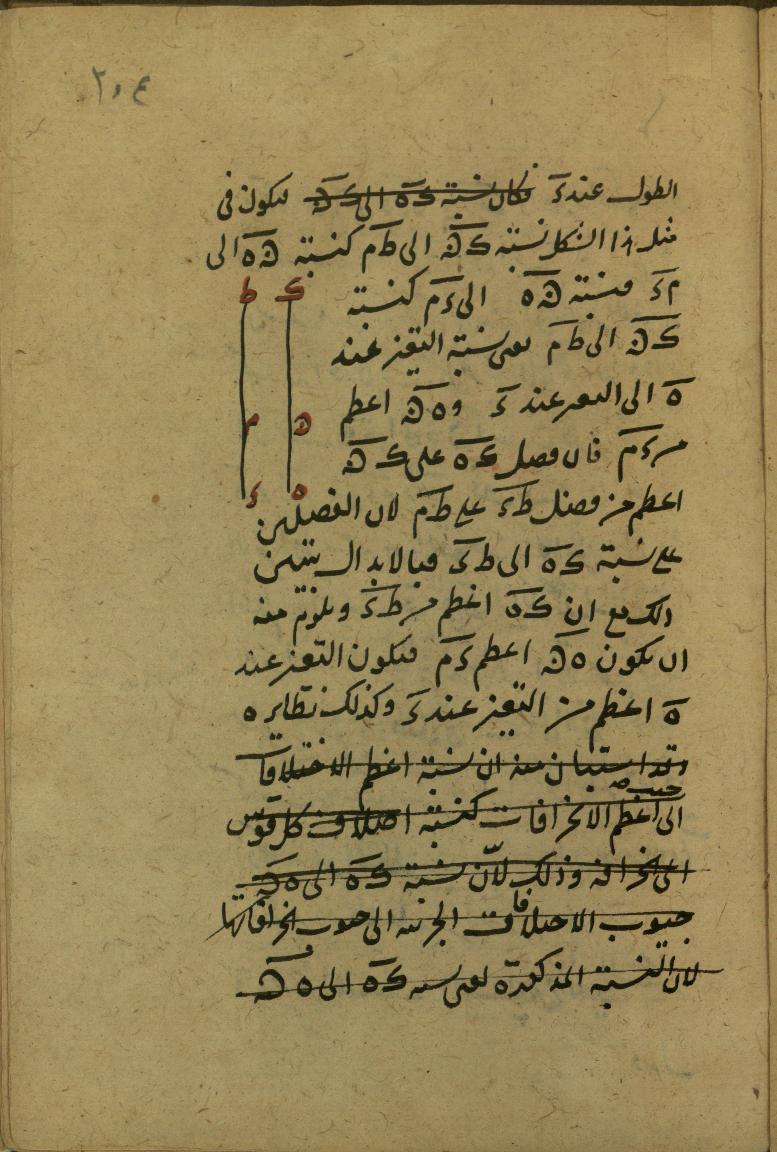 ٢٠٤
الطول عند ءَ فكان نسبة كه الى كھ فيكون فى
مثل هذا الشكل نسبة كھ الى طم كنسبة ھه الى
مء فنسبة ھه الى ءم كنسبة
كھ الى طم اعنى نسبة التقعر عند
ه الى التقعر عند ء و ه ھ اعظم
من ءم فان فضل كه على كھ
اعظم من فضل طء على طم لان الفضلين
على نسبة كه الى طء فبالابدال يتبين
ذلك مع ان كه اعظم من طء ويلزم منه
ان يكون ه ھ اعظم ءم فيكون التقعر عند
ه اعظم من التقعر عند ء وكذلك نظايره
وقد استبان منه ان نسبة اعظم الاختلافات
جيب
الى اعظم الانحرافات كنسبة اختلاف كل قوس
الى انحرافه وذلك لأن نسبة كه الى ه ھ
جيوب الاختلافات الجزئية الى جيوب انحرافاتها
لان النسبة المذكورة اعنى نسبة كه الى ه ھ
ك ط
ھ م
ه ء